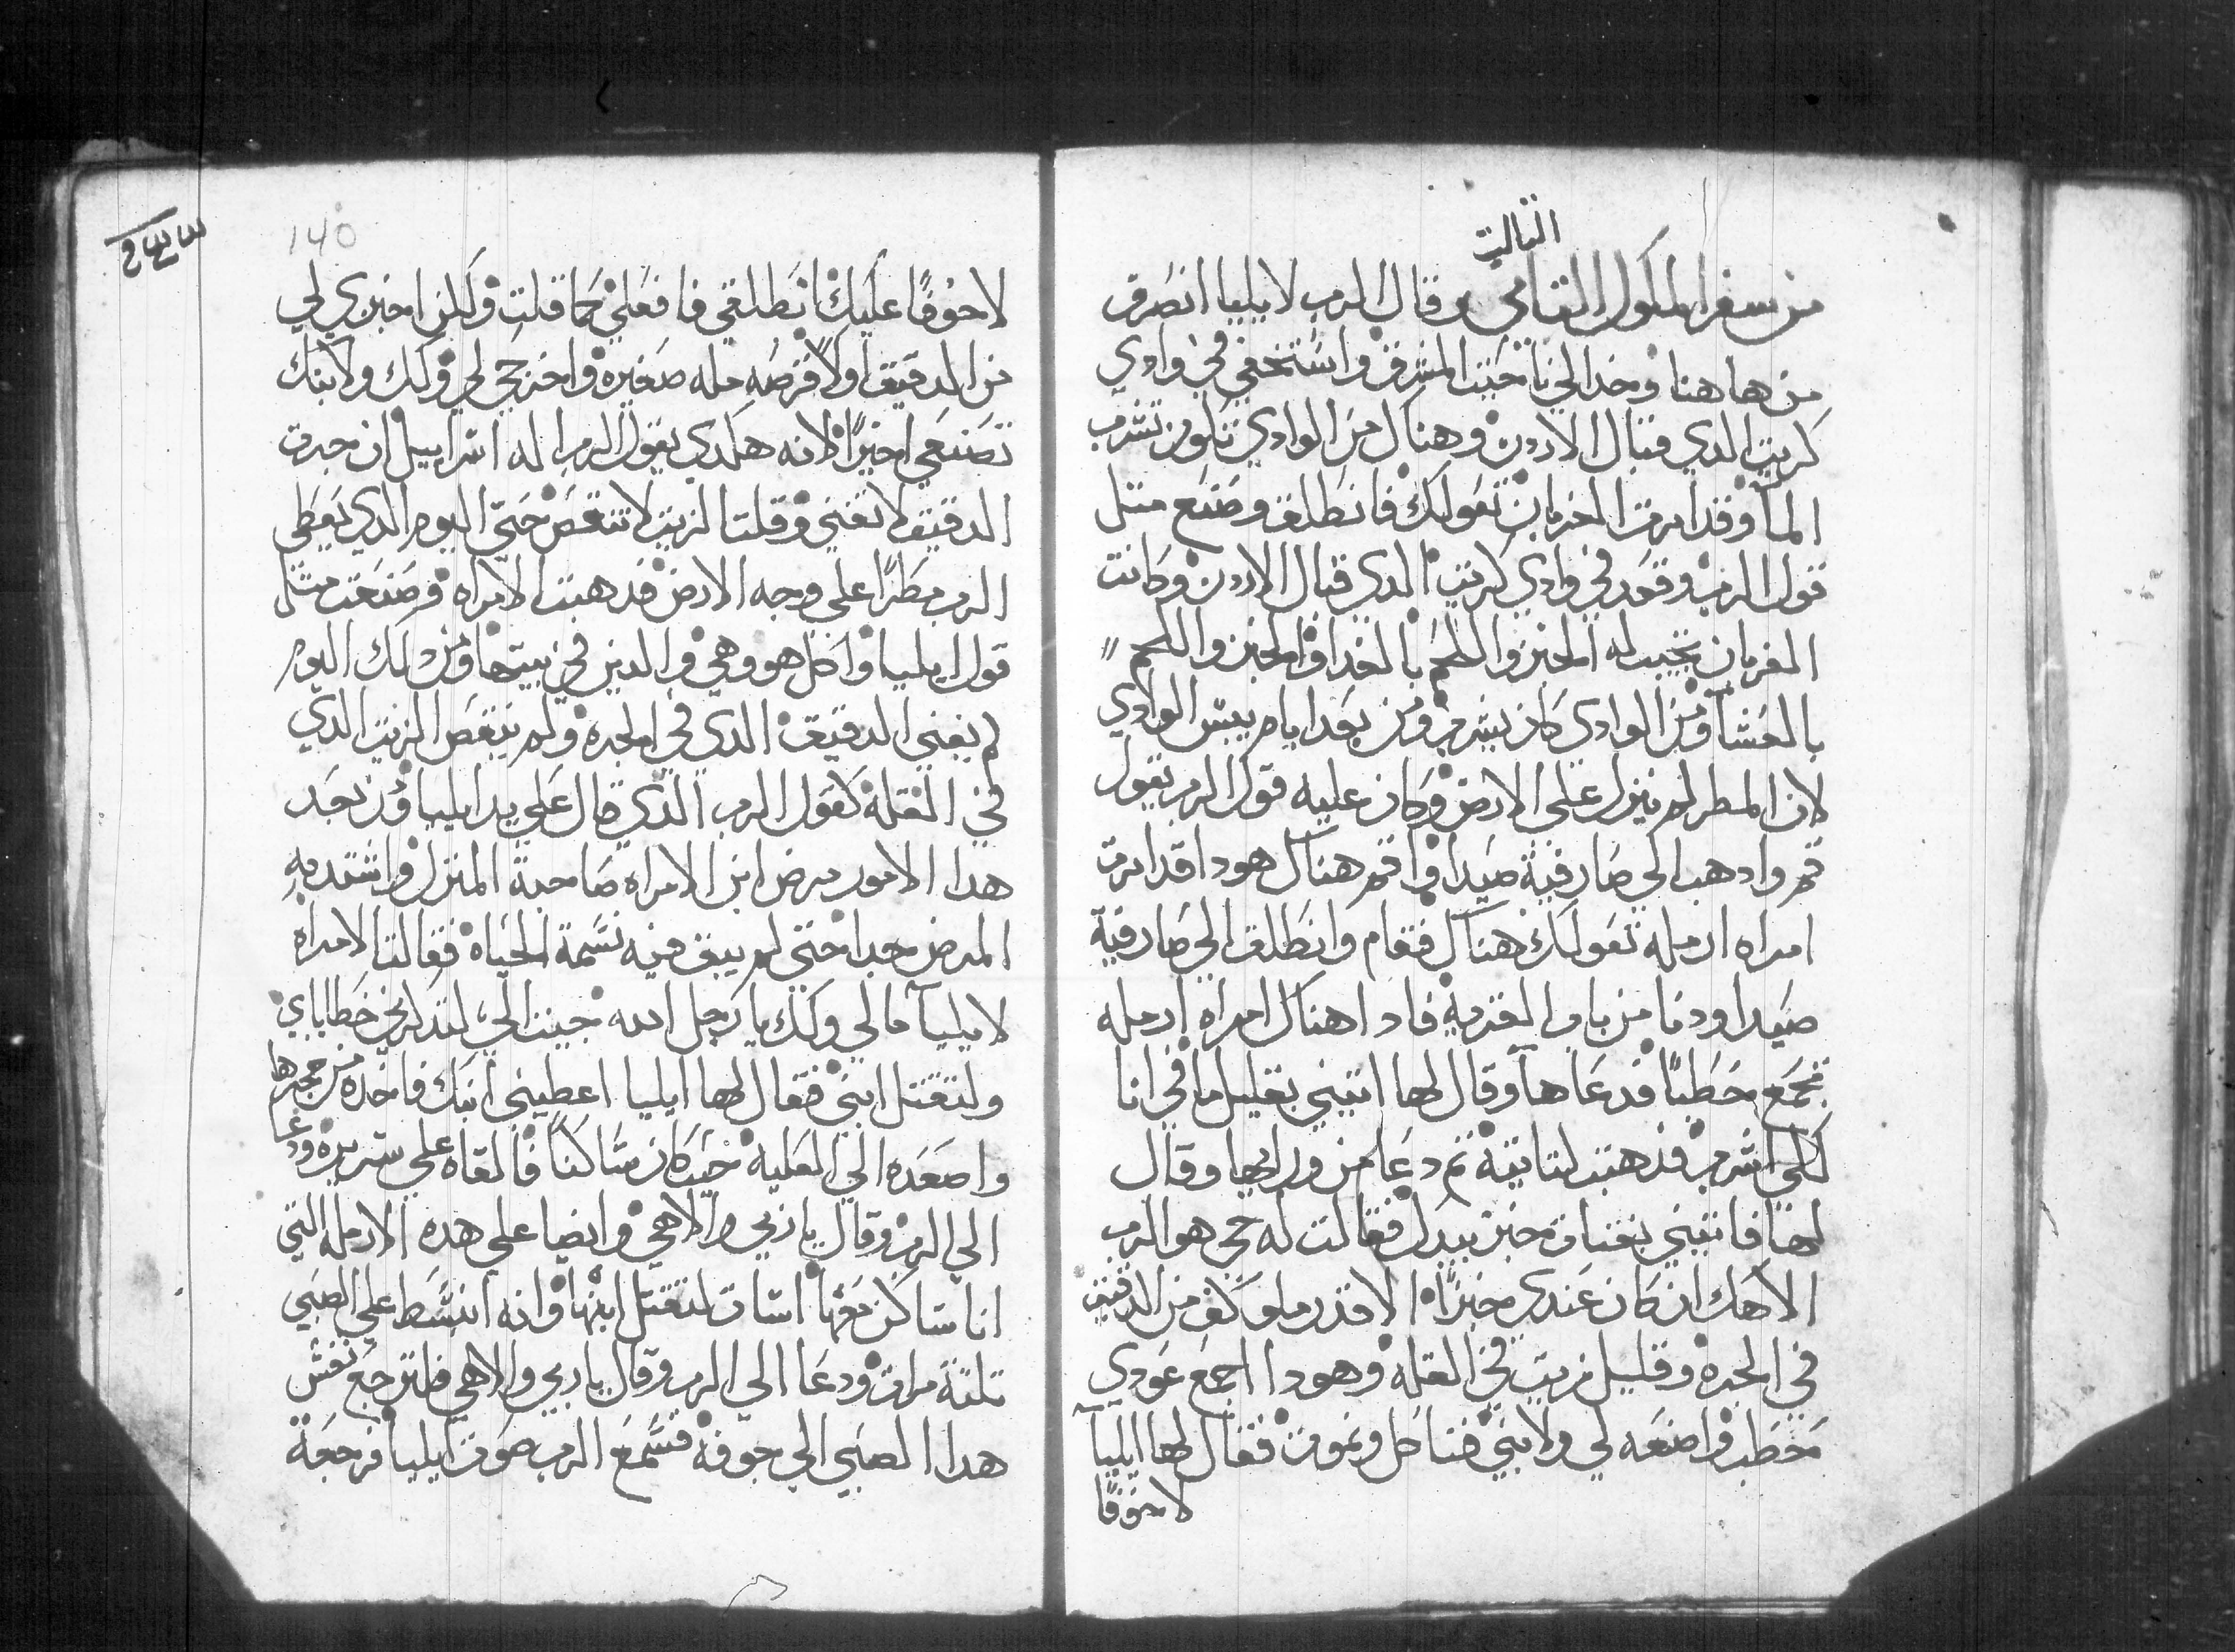 الثالث
من سفر الملوك الثامي وقال الرب لايليا انصرف
من هاهنا وخدا لحي ناحيت المشرق واستخفي في وادي
كريت الدي قبال الاردن وهناك من الوادي تكون تشرب
الما وقد امرت الغربان تعولك فانطلق وصنع متل
قول الرب وقعد في وادي كريت الدي قبال الاردن وكانت
الغربان تجيب له الخبز واللحم بالغدا والخبز واللحم
بالعشا ومن الوادي كان يشرب ومن بعد ايام يبس الوادي
لان المطر لم ينزل علي الارض وكان عليه قول الرب يقول
قم وادهب الي صارفية صيدا واقم هناك هودا قد امرت
امراه ارمله تعولك هناك فقام وانطلق الي صارفية
صيدا ودنا من باب القرية فادا هناك امراه ارمله
تجمع حطبًا فدعاها وقال لها اتيني بقليل ما في انا
لكي اشرب فدهبت لتاتية تم دعا من ورايها وقال
لها فاتيني بفتات خبز بيدك فقالت له حي هو الرب
الاهك ان كان عندي خبزًا الا قدر ملو كف من الدقيق
في الجره وقليل زيت في القله وهودا اجمع عودي
حطب واصنعه لي ولابني فناكل ونموت فقال لها ايليا
لا خوفًا
140
لا خوفًا عليك انطلقي فافعلي كما قلت ولكن اخبزي لي
من الدقيق اولًا قرصه مله صغيره واخرجي لي ولك ولابنك
تصنعي اخيرًا لانه هكدي يقول الرب اله اسراييل ان جرت
الدقيق لا تفني وقلت الزيت لا تنقص حتي اليوم الدي يعطي
الرب مطرًا علي وجه الارض فدهبت الامراه وصنعت متل
قول ايليا واكل هو وهي والدين في بيتها ومن دلك اليوم
لم يفني الدقيق الدي في الجره ولم ينقص الزيت الدي
في القلة كقول الرب الدي قال علي يد ايليا ومن بعد
هدا الامور مرض ابن الامراه صاحبة المنزل واشتد به
المرض جدا حتي لم يبق فيه نسمة الحياه فقالت الامراه
لايليا ما لي ولك يا رجل الله جيت الي لتدكرني خطاياي
ولتقتل ابني فقال لها ايليا اعطيني ابنك فاخده من حجرها
واصعده الي العلية حيت كان ساكنًا فالقاه علي سريره ودعا
الي الرب وقال يا ربي والاهي وايضا علي هده الارمله التي
انا ساكن معها اسات لتقتل ابنها وانه انبسط علي الصبي
تلتة مرات ودعا الي الرب وقال يا ربي والاهي فلترجع نفس
هدا الصبي الي جوفه فسمع الرب صوت ايليا فرجعة